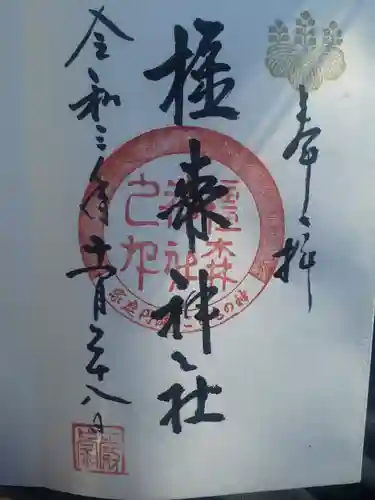 奉拝
橿森神社
令和三年十一月二十八日
橿森
神社
之印